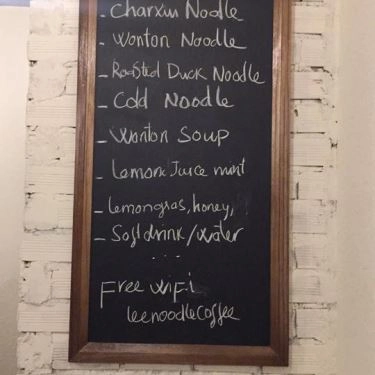 - Charxiu Noodle
- Wonton Noodle
- Roasted Duck Noodle
- Cold Noodle
- Wonton Soup
- Lemon Juice mint
- lemongras, honey,
- Soft drink/water
...
Free wifi
leenoodlecoffee